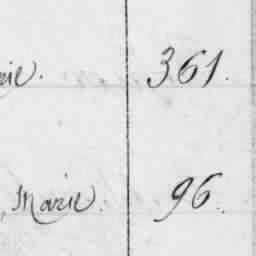 361.
, Marie. 96.